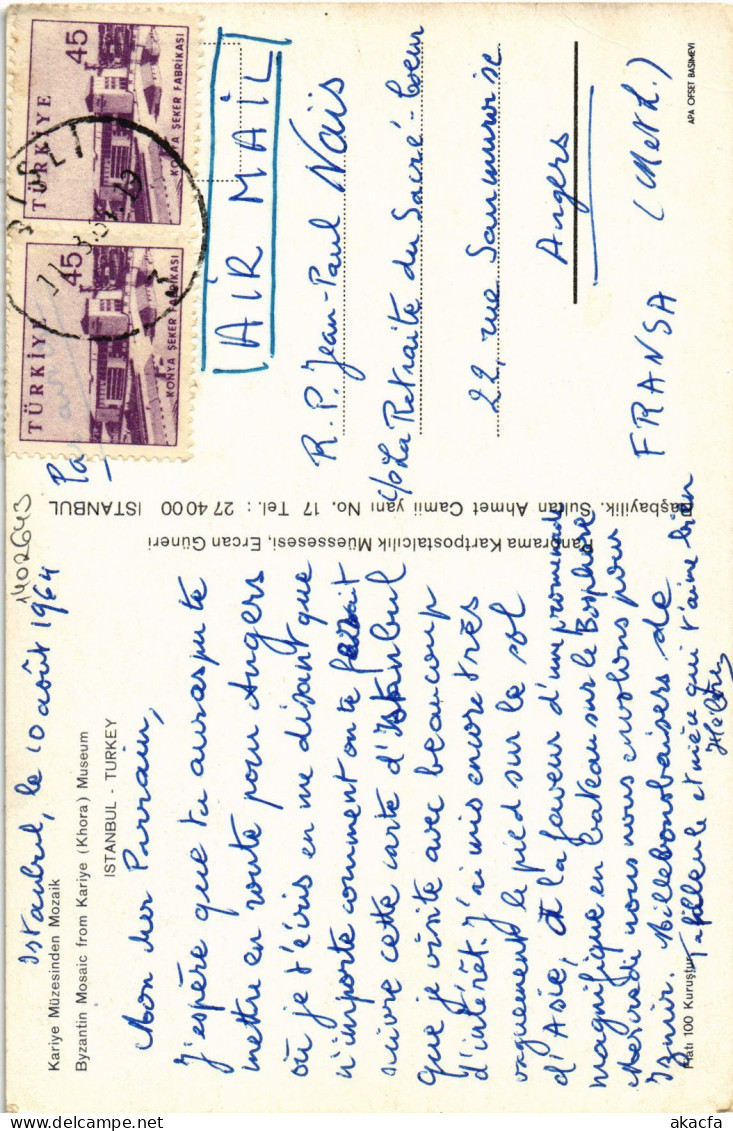 Istanbul, le 10 août 1964
Kariye Müzesinden Mozaik
Byzantin Mosaic from Kariye (Khora) Museum
ISTANBUL - TURKEY
Mon cher Parrain,
J'espère que tu auras pu te
mettre en route pour Angers
où je t'écris en me disant que
n'importe comment on te ferait
suivre cette carte d'Istanbul
que je visite avec beaucoup
d'intérêt. J'ai mis encore très
vaguement le pied sur le sol
d'Asie, à la faveur d'une promenade
magnifique en bateau sur le Bosphore
Mercredi nous nous envolons pour
Izmir. Mille bons baisers de
ta filleule et nièce qui t'aime bien
Fiatı 100 Kuruştur
Panorama Kartpostalcılık Müessesesi, Ercan Güneri
Başbayilik. Sultan Ahmet Camii yanı No. 17 Tel. : 27 40 00 ISTANBUL
1402643
Par avion
TÜRKİYE
45
KONYA ŞEKER FABRİKASI
TÜRKİYE
45
KONYA ŞEKER FABRİKASI
AIR MAIL
R.P. Jean-Paul Nais
c/o La Retraite du Sacré-Coeur
22, rue Saumuroise
Angers
FRANSA (M et L.)
APA OFSET BASIMEVI
akacfa
akacfa.com